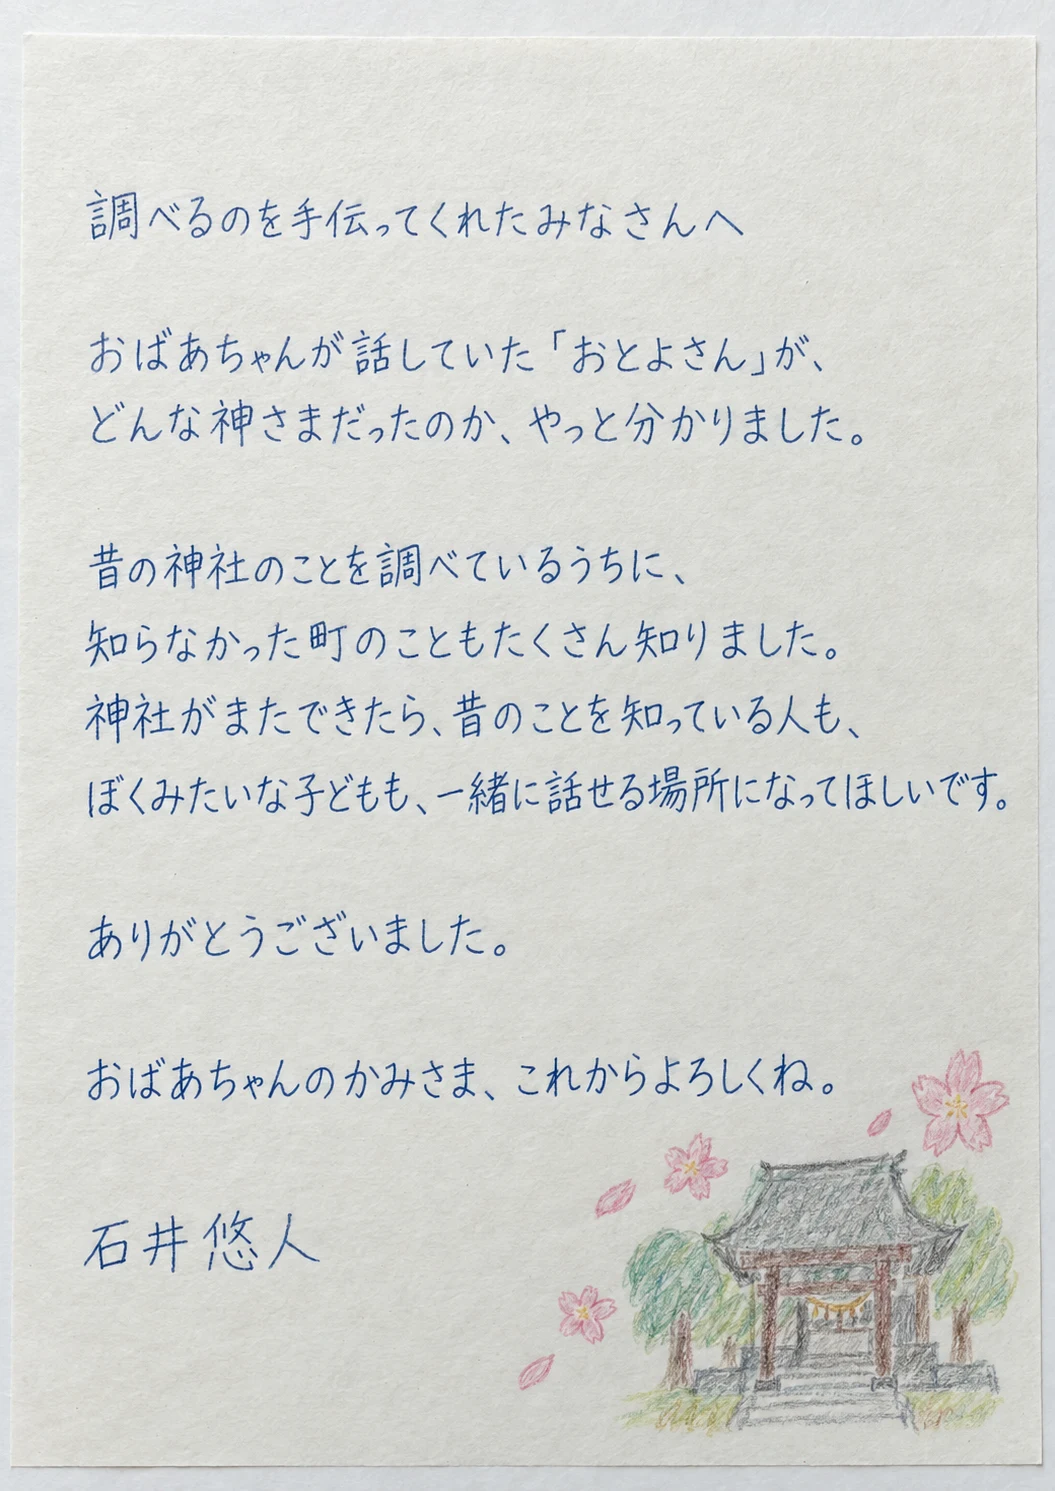 調べるのを手伝ってくれたみなさんへ
おばあちゃんが話していた「おとよさん」が、
どんな神さまだったのか、やっと分かりました。
昔の神社のことを調べているうちに、
知らなかった町のこともたくさん知りました。
神社がまたできたら、昔のことを知っている人も、
ぼくみたいな子どもも、一緒に話せる場所になってほしいです。
ありがとうございました。
おばあちゃんのかみさま、これからよろしくね。
石井悠人